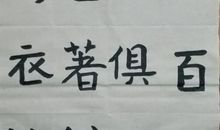 衣著俱百